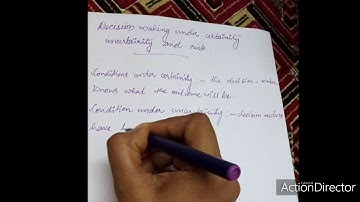 Decision making under certainity
uncertainity and risk
Conditions under certainity :- the decision-maker
knows what the outcome will be.
Condition under uncertainity :- decision makers
have
ActionDirector